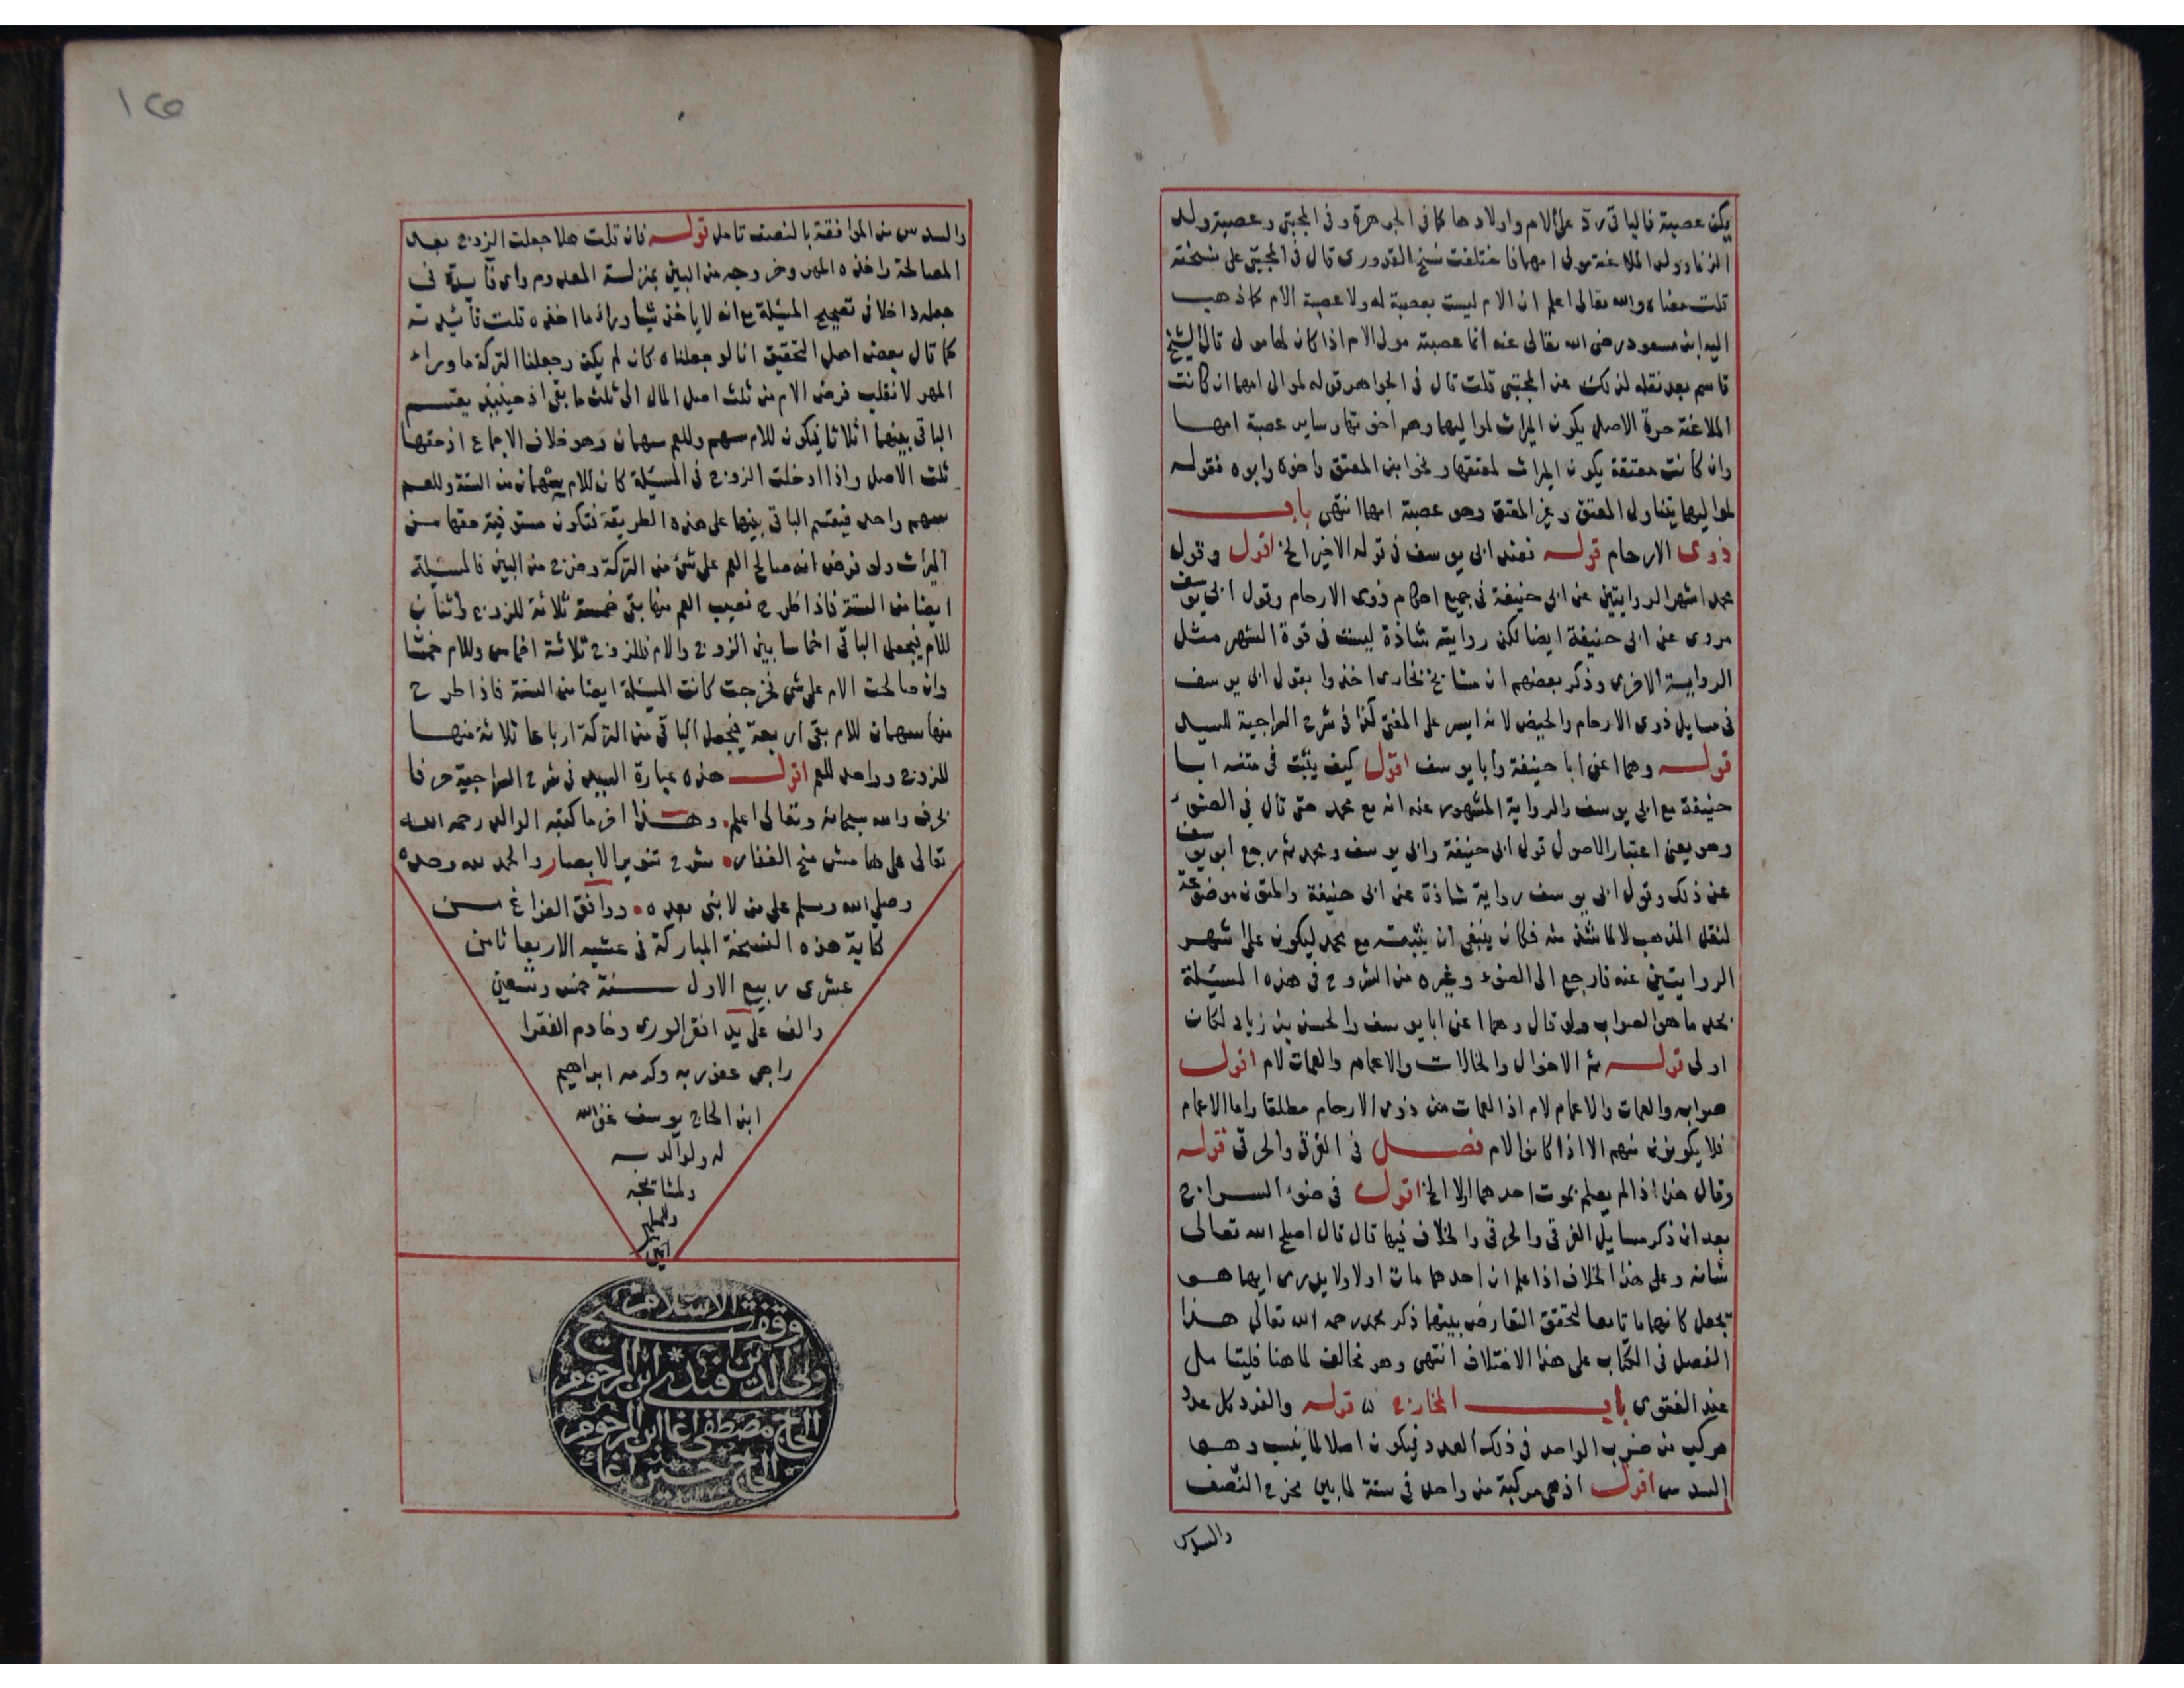 يكن عصبة فالباقي رد على الام واولادها كما في الجوهرة وفي المجتبى وعصبة ولد
الزنا وولد الملاعنة مولى امهما فاختلفت نسخ القدوري قال في المجتبى على نسخته
قلت معناه والله تعالى اعلم ان الام ليست بعصبة له ولا عصبة الام كما ذهب
اليه ابن مسعود رضي الله تعالى عنه انما عصبته مولى الام اذا كان لها مولى قال الشيخ
قاسم بعد نقله لذلك عن المجتبى قلت قال في الجواهر قوله لموالي امهما ان كانت
الملاعنة حرة الاصل يكون الميراث لمواليها وهم اخوتها وساير عصبة امها
وان كانت معتقة يكون الميراث لمعتقها ونحو ابن المعتق واخوه وابوه فقوله
لمواليها يتناول المعتق وغير المعتق وهو عصبة امها انتهى باب
ذوى الارحام قوله فعند ابي يوسف في قوله الاخير الخ اقول وقول
محمد اشهر الروايتين عن ابي حنيفة في جميع احكام ذوى الارحام وقول ابي يوسف
مروى عن ابي حنيفة ايضا لكن رواية شاذة ليست في قوة الشهر مثل
الرواية الاخرى وذكر بعضهم ان مشايخ بخارى اخذوا بقول ابي يوسف
في مسايل ذوى الارحام والحيض لانه ايسر على المفتي كذا في شرح السراجية للسيد
قوله وهما اعني ابا حنيفة وأبا يوسف اقول كيف يثبت في متنه ابا
حنيفة مع ابي يوسف والرواية المشهور عنه انه مع محمد حتى قال في الضوء
وهو يعني اعتبار الاصول قول ابي حنيفة وابي يوسف ومحمد ثم رجع ابو يوسف
عن ذلك وقول ابي يوسف رواية شاذة عن ابي حنيفة والمتون موضوعة
لنقل المذهب لا لما شذ منه فكان ينبغي ان يثبته مع محمد ليكون على اشهر
الروايتين عنه فارجع الى الضوء وغيره من الشروح في هذه المسئلة
تجد ما هو الصواب ولو قال وهما اعني ابا يوسف والحسن بن زياد لكان
اولى قوله ثم الاخوال والخالات والاعمام والعمات لام اقول
صوابه والعمات والاعمام لام اذ العمات من ذوى الارحام مطلقا واما الاعمام
فلا يكونون منهم الا اذا كانوا لام فصل في الغرقى والحرقى قوله
وقال هذا اذا لم يعلم بموت احدهما اولا الخ اقول في ضوء السراج
بعد ان ذكر مسايل الغرقى والحرقى والخلاف فيها قال قال اصلح الله تعالى
شانه وعلى هذا الخلاف اذا علم ان احدهما مات اولا ولا يدرى ايهما هو
تجعل كانهما ماتا معا لتحقق التعارض بينهما ذكر محمد رحمه الله تعالى هذا
الفصل في الكتاب على هذا الاختلاف انتهى وهو مخالف لما هنا فليتامل
عند الفتوى باب المخارج قوله والفرد كل عدد
مركب من ضرب الواحد في ذلك العدد فيكون اصلا لما ينسب وهو
السدس اقول اذ هي مركبة من واحد في ستة لما بين مخرج النصف
والسدس
والسدس من الموافقة بالنصف تامل قوله فان قلت هلا جعلت الزوج بعد
المصالحة واخذه المهر وخروجه من البين بمنزلة المعدوم واى فايدة في
جعله داخلا في تصحيح المسئلة مع انه لا ياخذ شيئا وراء ما اخذه قلت فائدته
كما قال بعض اهل التحقيق انا لو جعلناه كان لم يكن وجعلنا التركة ما وراء
المهر لانقلب فرض الام من ثلث اصل المال الى ثلث ما بقى اذ حينئذ يقتسم
الباقي بينهما اثلاثا فيكون للام سهم وللعم سهمان وهو خلاف الاجماع اذ حقها
ثلث الاصل واذا ادخلت الزوج في المسئلة كان للام سهمان من الستة وللعم
سهم واحد فيقتسم الباقي بينهما على هذه الطريقة فتكون مستوفية حقها من
الميراث ولو فرض انه صالح العم على شئ من التركة وخرج من البين فالمسئلة
ايضا من الستة فاذا طرح نصيب العم منها بقى خمسة ثلاثة للزوج واثنان
للام فيجعل الباقي اخماسا بين الزوج والام فللزوج ثلاثة اخماس وللام خمسا
وان صالحت الام على شئ فخرجت كانت المسئلة ايضا من الستة فاذا طرح
منها سهمان للام بقى اربعة فيجعل الباقي من التركة ارباعا ثلاثة منها
للزوج وواحد للعم اقول هذه عبارة السيد في شرح السراجية حرفا
بحرف والله سبحانه وتعالى اعلم وهذا اخر ما كتبه الوالد رحمه الله
تعالى على هامش منح الغفار شرح تنوير الابصار والحمد لله وحده
وصلى الله وسلم على من لا نبى بعده ووافق الفراغ من
كتابة هذه النسخة المباركة في عشية الاربعا ثامن
عشرى ربيع الاول سنة خمس وتسعين
والف على يد افقر الورى وخادم الفقرا
راجى عفو ربه وكرمه ابراهيم
ابن الحاج يوسف غفر الله
له ولوالديه
ولمشايخه
وللمسلمين
امين
وقف شيخ الاسلام
ولى الدين افندى ابن المرحوم
الحاج مصطفى اغا ابن المرحوم
الحاج حسين اغا